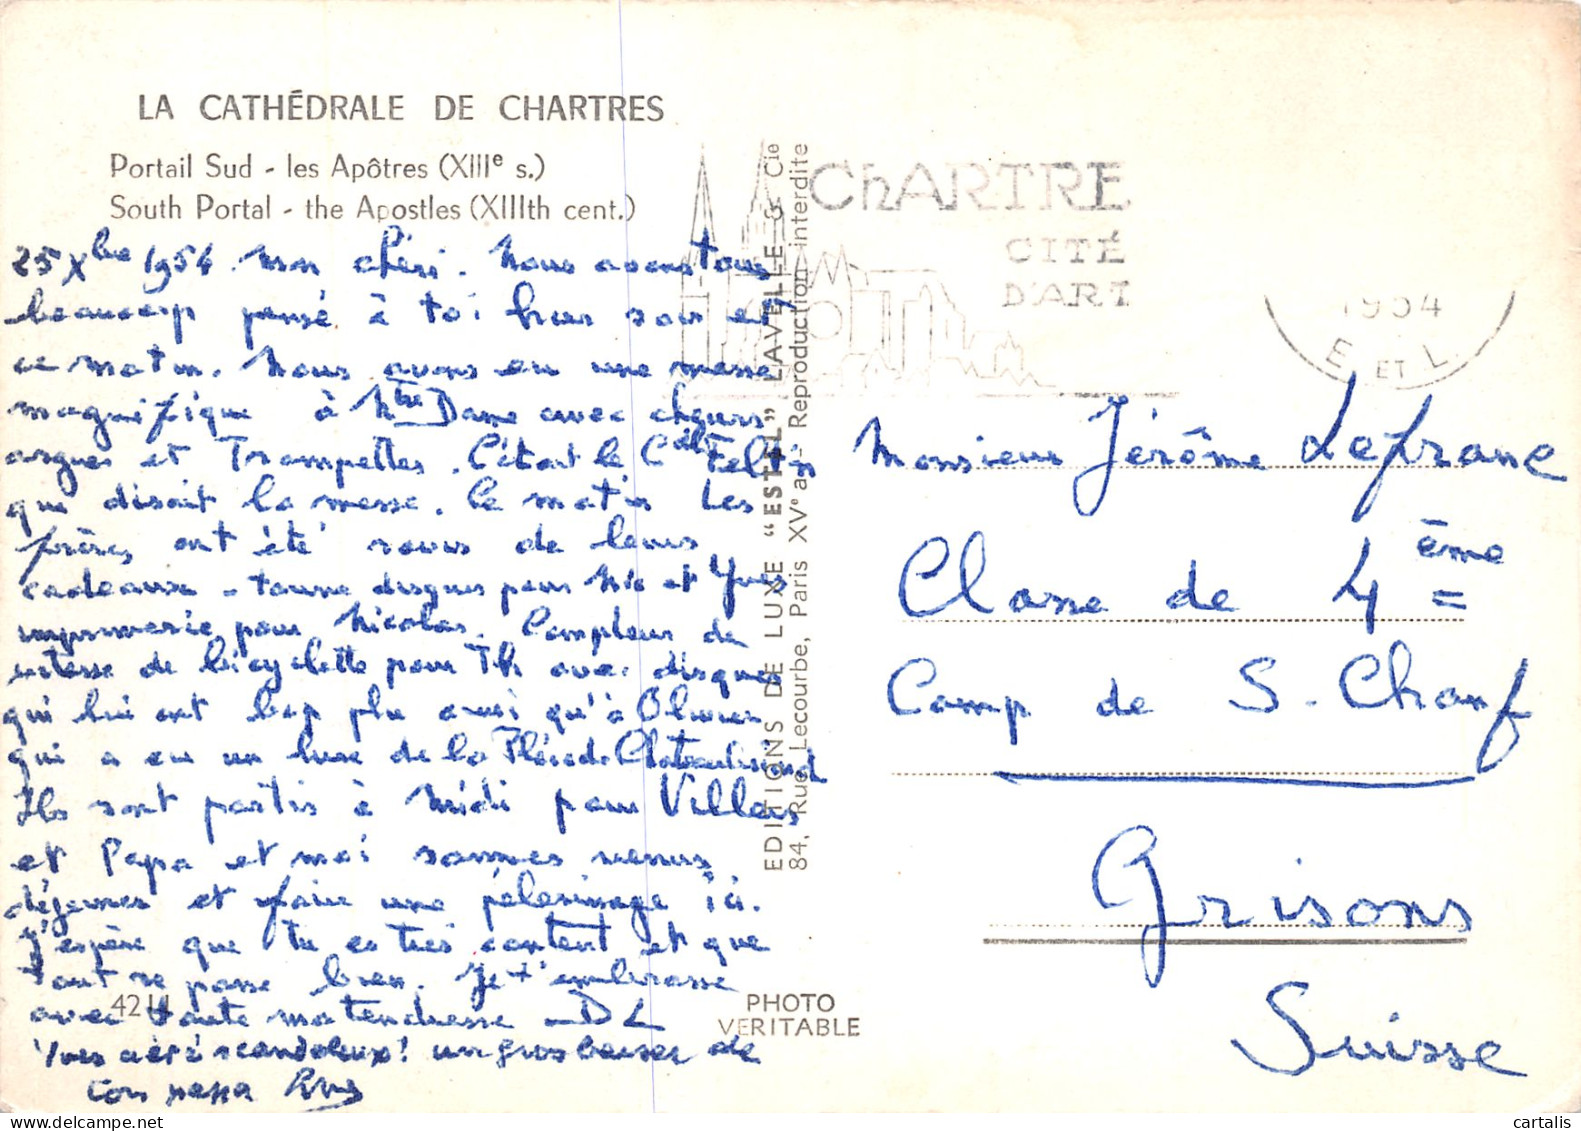 LA CATHÉDRALE DE CHARTRES
Portail Sud - les Apôtres (XIIIe s.)
South Portal - the Apostles (XIIIth cent.)
25 Xbre 1954. Mon chéri. Nous avons tous
beaucoup pensé à toi hier soir et
ce matin. Nous avons eu une messe
magnifique à Ntre Dame avec chœurs
orgues et Trompettes. C'était le Cal Feltin
qui disait la messe. Ce matin les
frères ont été ravis de leurs
cadeaux - tourne disques pour Nic et Yves
imprimerie pour Nicolas. Compteur de
vitesse de bicyclette pour Th avec disques
qui lui ont bcp plu ainsi qu'à Olivier
qui a eu un livre de la Pléiade Chateaubriand
Ils sont partis à Midi pour Villers
et Papa et moi sommes venus
déjeuner et faire une pèlerinage ici.
J'espère que tu es très content et que
tout se passe bien. Je t'embrasse
avec toute ma tendresse - DL
Yves a été scandaleux! un gros baiser de
ton papa
4211
EDITIONS DE LUXE "ESTEL" LAVELLE & Cie
84, Rue Lecourbe, Paris XVe arr - Reproduction interdite
PHOTO
VERITABLE
CHARTRE
CITÉ
D'ART
1954
E ET L
Monsieur Jérôme Lefranc
Classe de 4ème
Camp de S. Chanf
Grisons
Suisse
cartalis